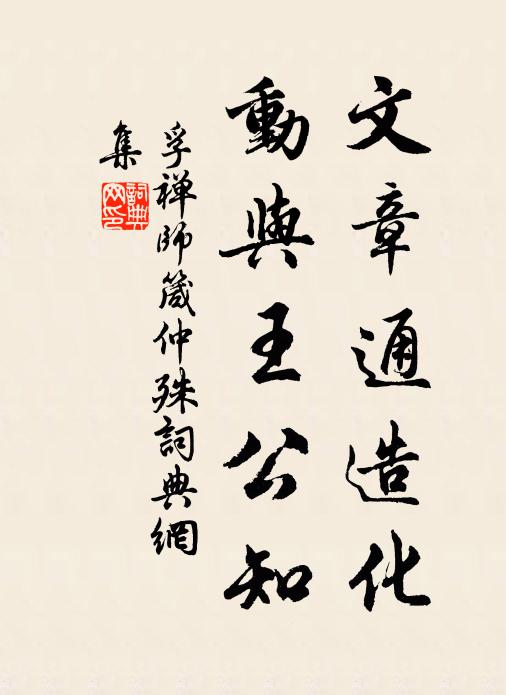 文章通造化
動與王公知
孚禅師箴仲殊詞典網
集
詞典
网印